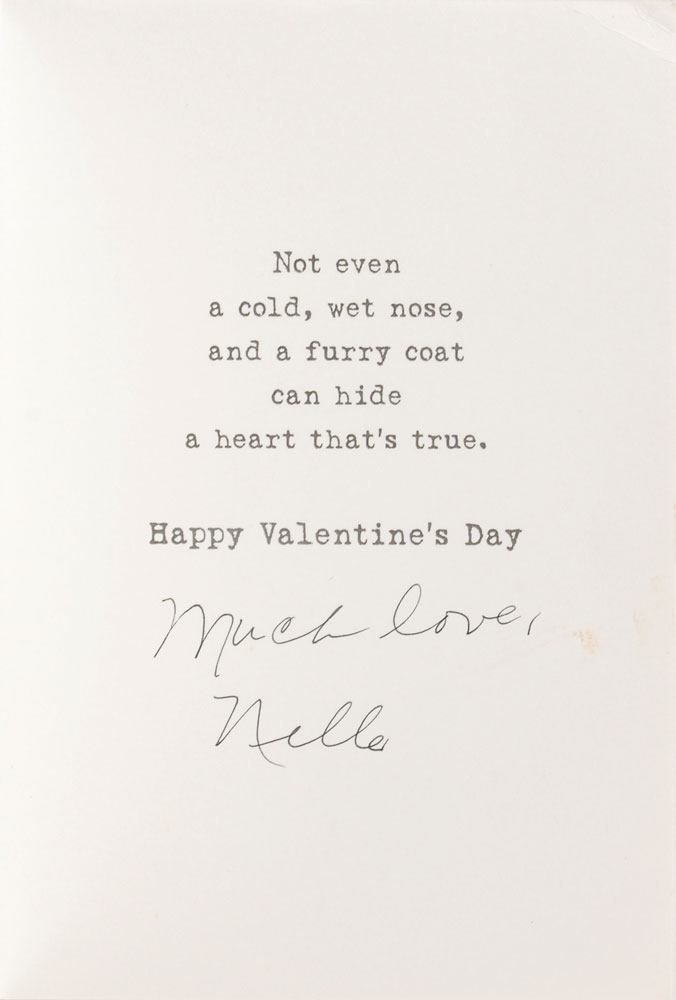 Not even
a cold, wet nose,
and a furry coat
can hide
a heart that's true.
Happy Valentine's Day
Much love,
Nelle